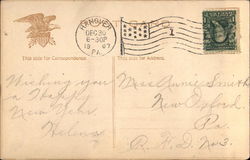 HANOVER
DEC 30
6-30P
1907
PA.
1
This side for Correspondence.
This side for Address.
Wishing you
a Happy
New Year.
Helena
Miss Annie Smith
New Oxford
Pa.
R. F. D. No 3.